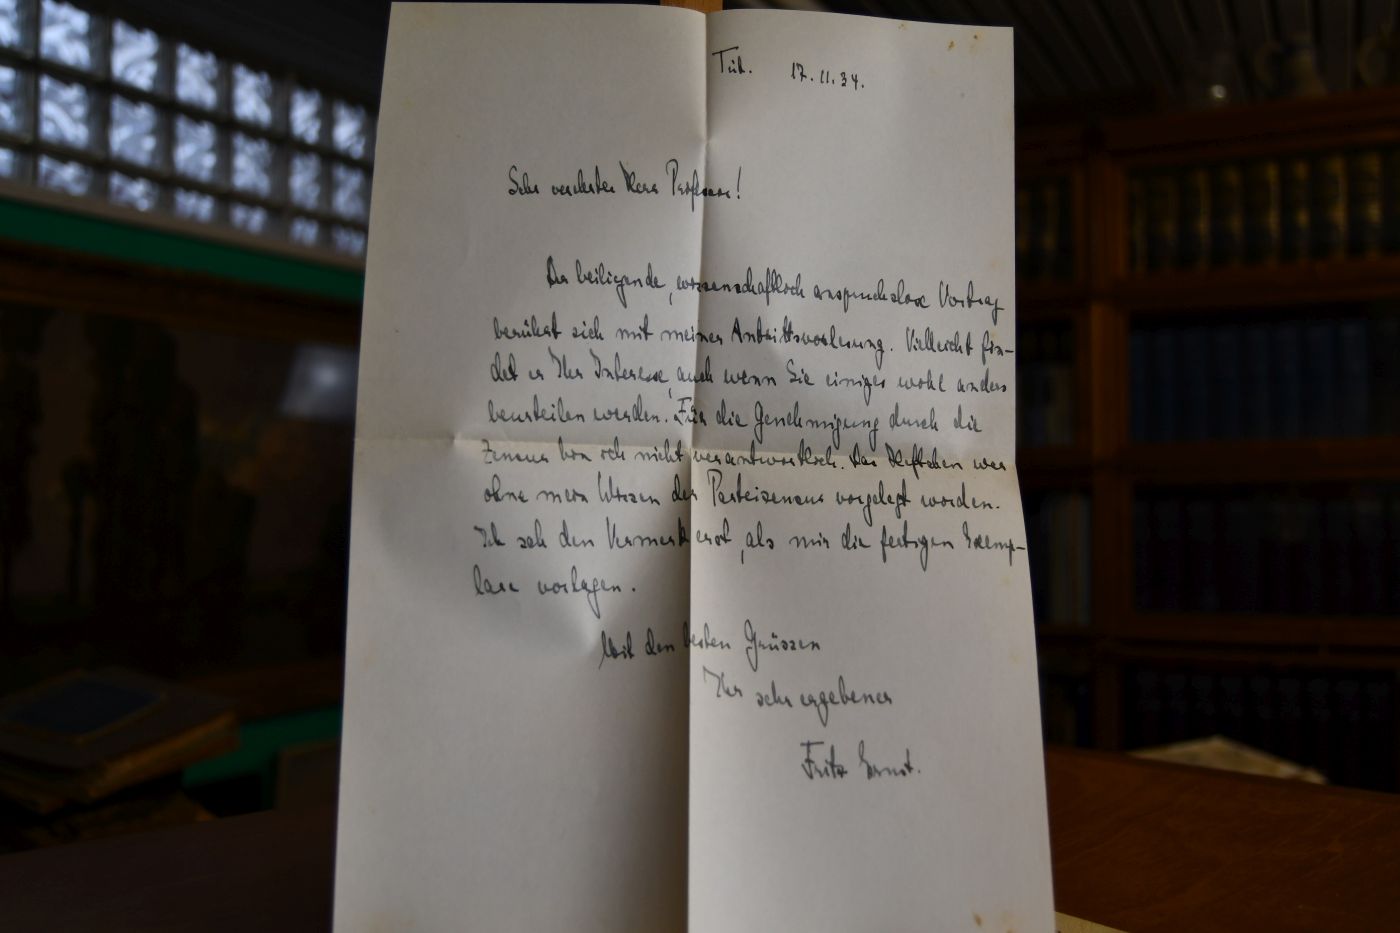 Tüb. 17.11.34.
Sehr verehrter Herr Professor!
Der beiliegende, wissenschaftlich anspruchslose Vortrag
berührt sich mit meiner Antrittsvorlesung. Vielleicht fin-
det er Ihr Interesse, auch wenn Sie einiges wohl anders
beurteilen werden. Für die Genehmigung durch die
Zensur bin ich nicht verantwortlich. Das Heftchen war
ohne mein Wissen der Parteizensur vorgelegt worden.
Ich sah den Vermerk erst, als mir die fertigen Exemp-
lare vorlagen.
Mit den besten Grüssen
Ihr sehr ergebener
Fritz Ernst.